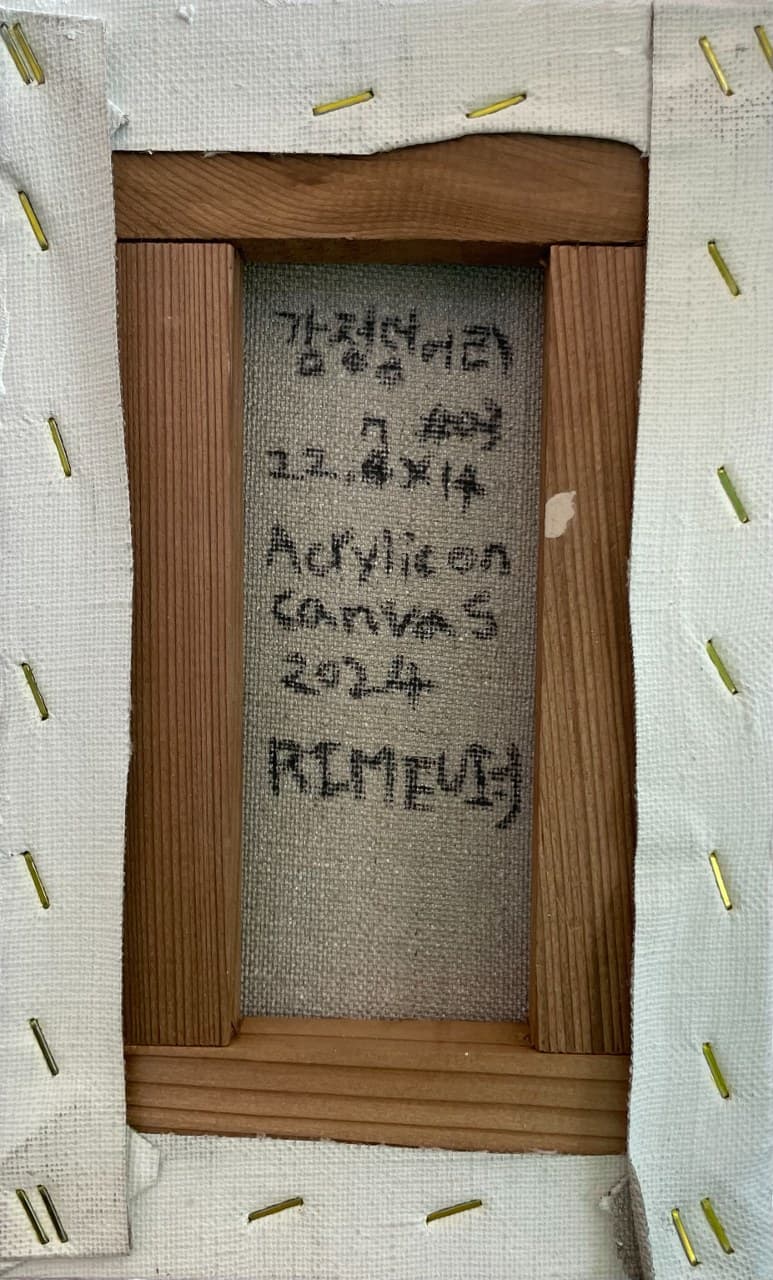 감정덩어리
7
22.4x14
Acrylic on
canvas
2024
RIMEUI:)